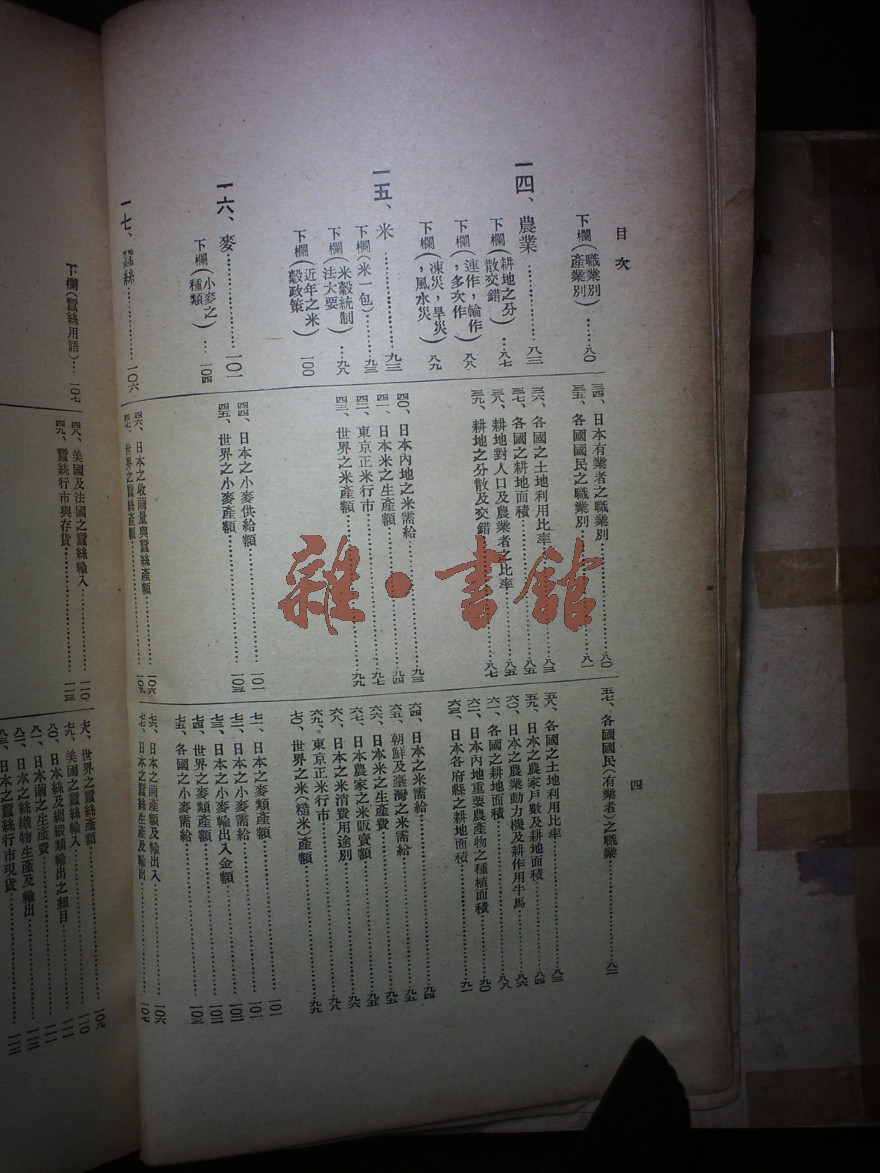 目次
四
下欄(職業別產業別)……八〇
一四、農業……八三
下欄(耕地之分散交錯)……八七
下欄(連作,輪作,多次作)八八
下欄(凍災,旱災,風水災)八九
一五、米……九三
下欄(米一包)……九三
下欄(米穀統制法大要)……九八
下欄(近年之米穀政策)一〇〇
一六、麥……一〇一
下欄(小麥之種類)……一〇四
一七、蠶絲……一〇六
三四、日本有業者之職業別……八〇
三五、各國國民之職業別……八一
三六、各國之土地利用比率……八三
三七、各國之耕地面積……八五
三八、耕地對人口及農業者之比率……八五
三九、耕地之分散及交錯……八七
四〇、日本內地之米需給……九三
四一、日本米之生產額……九四
四二、東京正米行市……九七
四三、世界之米產額……九九
四四、日本之小麥供給額……一〇一
四五、世界之小麥產額……一〇三
四六、日本之收繭量與蠶絲產額……一〇六
四七、世界之蠶絲產額
五七、各國國民(有業者)之職業……八二
五八、各國之土地利用比率……八三
五九、日本之農家戶數及耕地面積……八四
六〇、日本之農業動力機及耕作用牛馬……八六
六一、各國之耕地面積……八八
六二、日本內地重要農產物之種植面積……九〇
六三、日本各府縣之耕地面積……九一
六四、日本之米需給……九四
六五、朝鮮及臺灣之米需給……九五
六六、日本米之生產費……九五
六七、日本農家之米販賣額……九六
六八、日本之米消費用途別……九八
六九、東京正米行市……九九
七〇、世界之米(糙米)產額……九九
七一、日本之麥類產額……一〇一
七二、日本之小麥需給……一〇一
七三、日本之小麥輸出入金額……一〇二
七四、世界之麥類產額……一〇二
七五、各國之小麥需給……一〇三
七六、日本之繭產額及輸出入……一〇六
七七、日本之蠶絲生產及輸出……一〇七
下欄(蠶絲用語)……一〇七
四八、美國及法國之蠶絲輸入……一一〇
四九、蠶絲行市與存貨……一一三
七八、世界之蠶絲產額……一〇九
七九、美國之蠶絲輸入……一一〇
八〇、日本絲及綢緞類輸出之細目……一一一
八一、日本繭之生產費……一一二
八二、日本之絲織物生產及輸出……一一二
八三、日本之蠶絲行市現貨……一一三
雜·書館